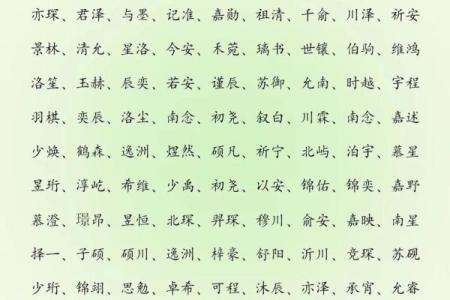 亦琛、君泽、与墨、记准、嘉勋、祖清、千俞、川泽、祈安
景林、清允、星洛、今安、禾菀、璃书、世镶、伯驹、维鸿
洛笙、玉赫、辰奕、若安、谨辰、苏御、允南、时越、宇程
羽棋、奕辰、洛尘、南念、初尧、叙白、川霖、南念、嘉述
少焕、鹤森、逸洲、煜然、硕凡、祈宁、北屿、泊宇、慕星
昱珩、淳屹、希维、少禹、初尧、以安、锦佑、锦奕、嘉野
慕澄、璟昂、昱恒、北琛、羿琛、穆川、俞安、嘉映、南星
择一、子硕、硕川、逸洲、梓豪、舒阳、沂川、竞琛、苏砚
少珩、锦翊、思勉、卓希、可程、沐辰、亦泽、承宵、允睿